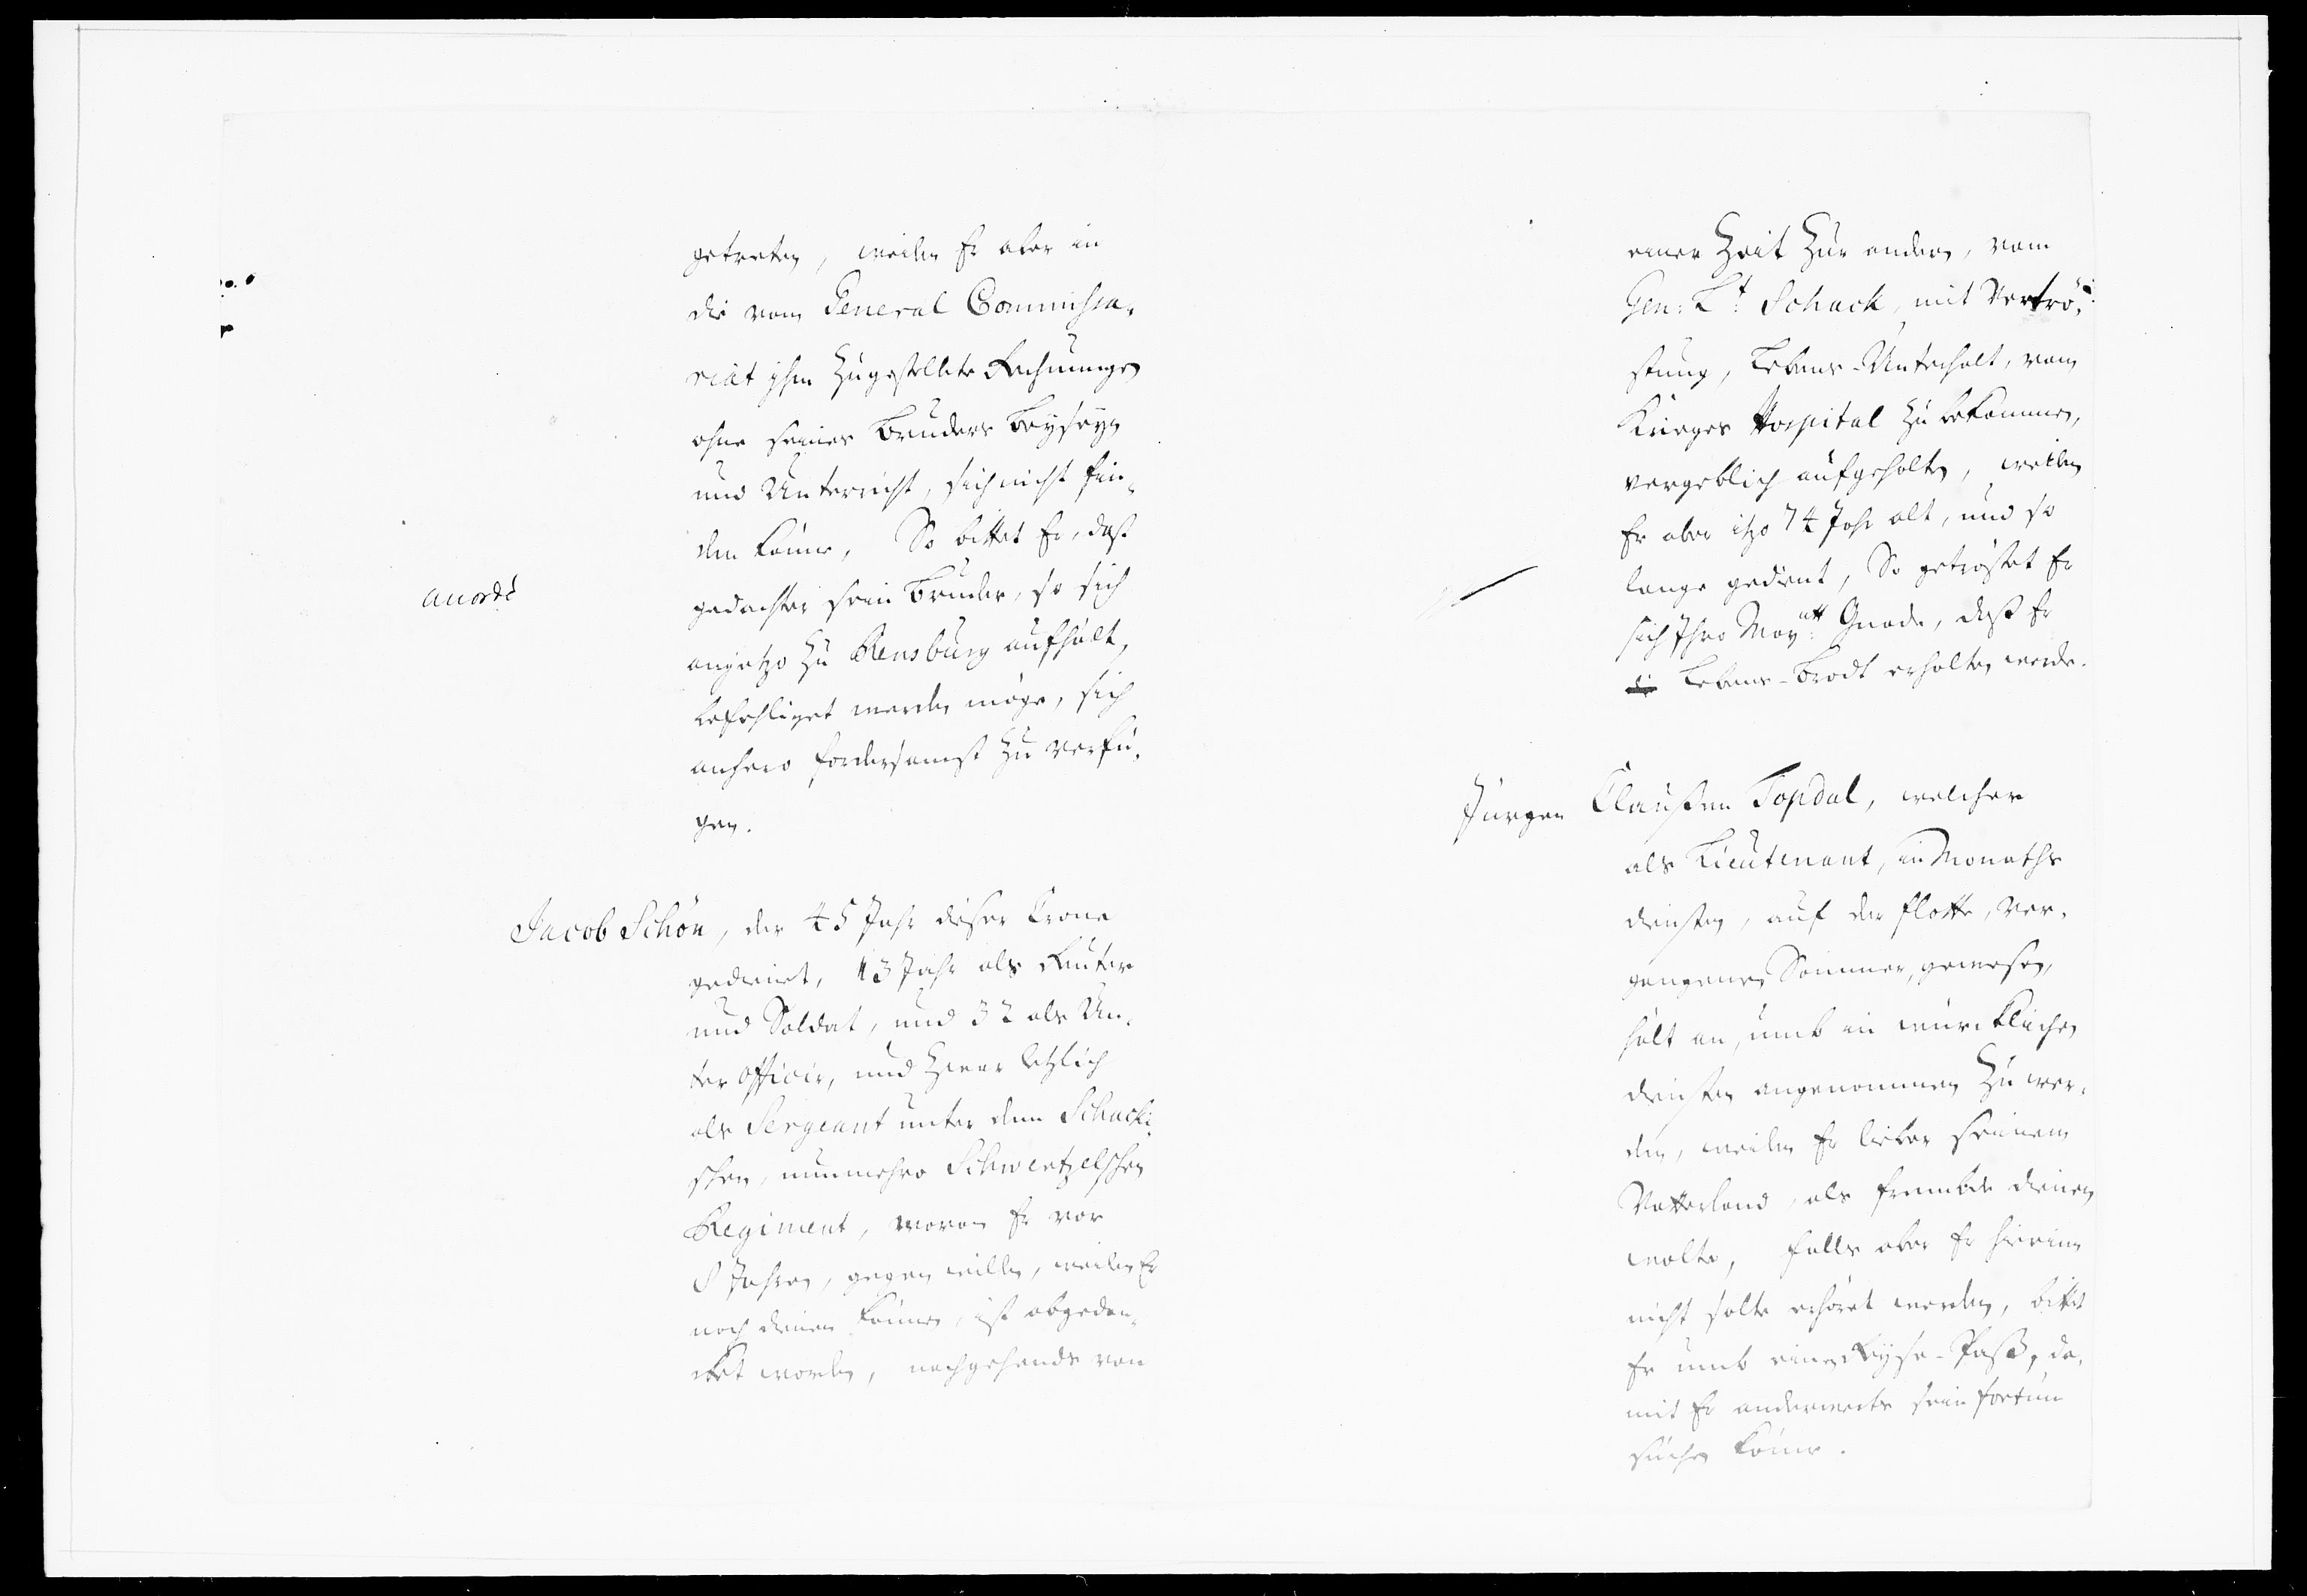 getreten, weilen Er aber in
die vom General Commissa-
riat ihm zugestellete Rechnungen
ohne seines Bruders Beyseyn
und Unterricht, sich nicht fin-
den könne, So bittet Er, daß
accordé
gedachter sein Bruder, so sich
anjetzo zu Rensburg aufhält,
befehliget werden möge, sich
anhero fordersamst zu verfü-
gen.
Jacob Schön, der 45 Jahr dieser Crone
gedienet, 13 Jahr als Reuter
und Soldat, und 32 als Un-
ter Officir, und zwar letzlich
als Sergeant unter dem Schacki-
schen, nunmehro Schwentzelschen
Regiment, wovon Er vor
8 Jahren, gegen willen, weilen Er
noch dienen können, ist abgedan-
cket worden, nachgehends von
einer Zeit zur andern, vom
Gen: Lt: Schack, mit Vertrö-
stung, Lebens-Unterhalt, vom
Krieges Hospital zu bekommen,
vergeblich aufgehalten, weilen
Er aber itzo 74 Jahr alt, und so
lange gedient, So getröstet Er
sich Ihro Maytt: Gnade, daß Er
Lebens-Brodt erhalten werde.
Jürgen Claussen Topdal, welcher
als Lieutenant, in Monaths
diensten, auf der Flotte, ver-
gangenen Sommer, gewesen,
hält an, umb in würckliche
diensten angenommen zu wer-
den, weilen Er lieber seinem
Vatterland, als frembde dienen
wolte, falls aber Er hierinn
nicht solte erhöret werden, bittet
Er umb einen Reyse-Pass, da-
mit Er anderwerts sein fortun
suchen könne.